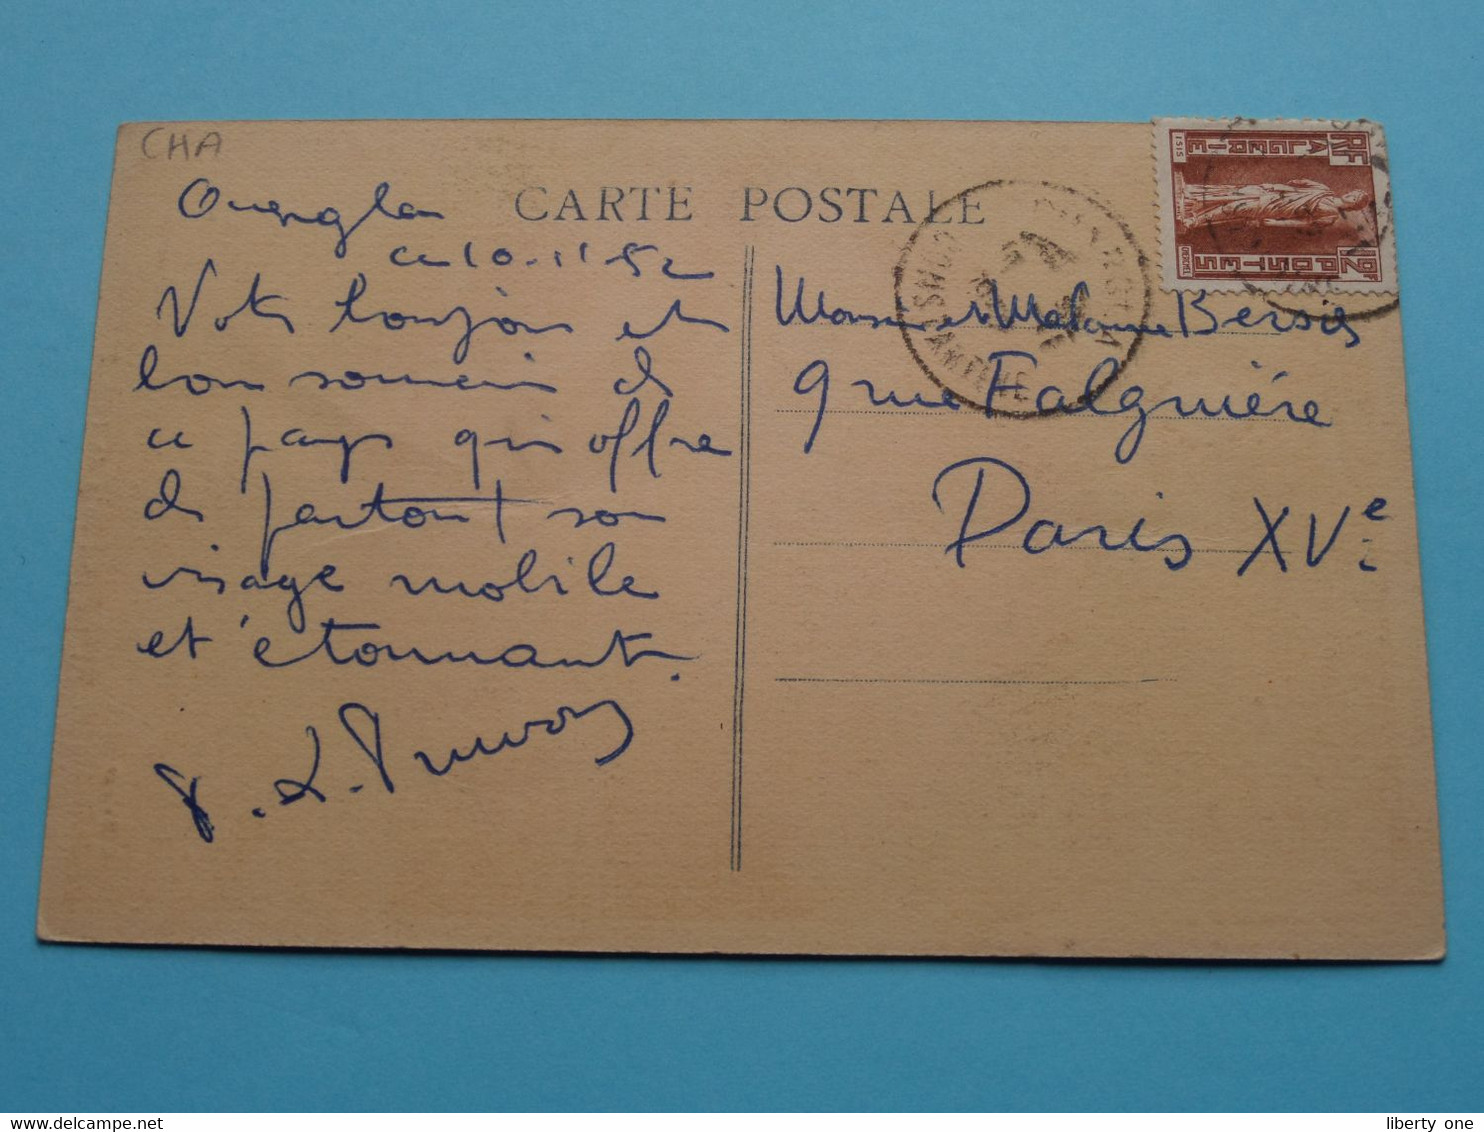 CHA
CARTE POSTALE
Ouargla
ce 10.11 52
Vote toujours et
bon souvenir de
ce pays qui offre
de partout son
visage mobile
et étonnant.
Monsieur et Madame Bersi
9 rue Falguière
Paris XVe
RF
ALGERIE
ISIS
12F
POSTES
CONSTANTINE
liberty one